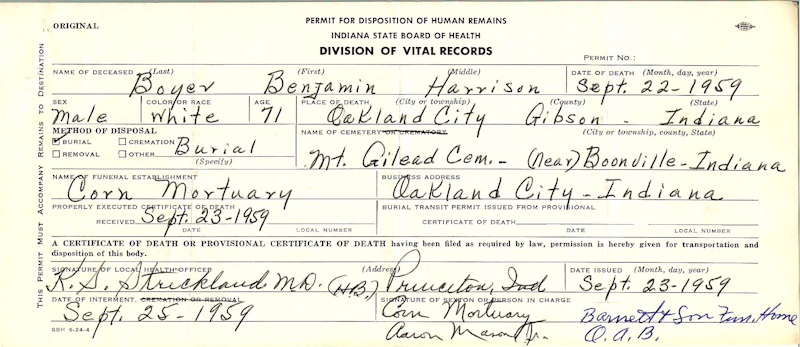 ORIGINAL
PERMIT FOR DISPOSITION OF HUMAN REMAINS
INDIANA STATE BOARD OF HEALTH
DIVISION OF VITAL RECORDS
PERMIT NO.:
THIS PERMIT MUST ACCOMPANY REMAINS TO DESTINATION
NAME OF DECEASED (Last) (First) (Middle) DATE OF DEATH (Month, day, year)
Boyer Benjamin Harrison Sept. 22-1959
SEX COLOR OR RACE AGE PLACE OF DEATH (City or township) (County) (State)
Male White 71 Oakland City Gibson - Indiana
METHOD OF DISPOSAL NAME OF CEMETERY OR CREMATORY (City or township, county, State)
BURIAL CREMATION Burial
REMOVAL OTHER
(Specify)
Mt. Gilead Cem. - (near) Boonville - Indiana
NAME OF FUNERAL ESTABLISHMENT BUSINESS ADDRESS
Corn Mortuary Oakland City - Indiana
PROPERLY EXECUTED CERTIFICATE OF DEATH BURIAL TRANSIT PERMIT ISSUED FROM PROVISIONAL
RECEIVED Sept. 23-1959 CERTIFICATE OF DEATH.
DATE LOCAL NUMBER DATE LOCAL NUMBER
A CERTIFICATE OF DEATH OR PROVISIONAL CERTIFICATE OF DEATH having been filed as required by law, permission is hereby given for transportation and
disposition of this body.
SIGNATURE OF LOCAL HEALTH OFFICER (Address) DATE ISSUED (Month, day, year)
K. S. Strickland M.D. (H.B.) Princeton, Ind Sept. 23-1959
DATE OF INTERMENT, CREMATION OR REMOVAL SIGNATURE OF SEXTON OR PERSON IN CHARGE
Sept. 25-1959 Corn Mortuary Barnett & Son Fun. Home
Aaron Mason Jr. O.A.B.
SBH 6-24-4